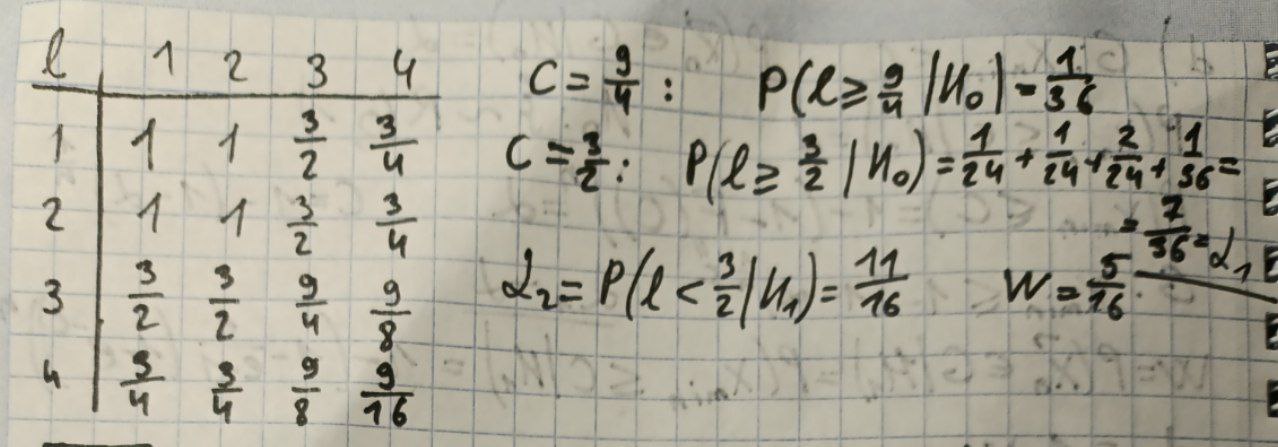 l 1 2 3 4
1 1 1 3/2 3/4
2 1 1 3/2 3/4
3 3/2 3/2 9/4 9/8
4 3/4 3/4 9/8 9/16
C = 9/4 : P(l ≥ 9/4 | H₀) = 1/36
C = 3/2 : P(l ≥ 3/2 | H₀) = 1/24 + 1/24 + 2/24 + 1/36 =
= 7/36 = α₁
α₂ = P(l < 3/2 | H₁) = 11/16 W = 5/16